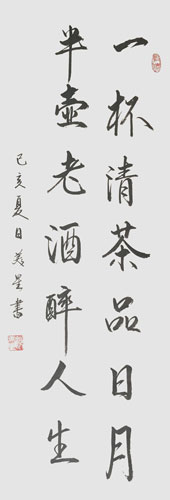 一杯清茶品日月
半壶老酒醉人生
己亥夏日 美星书